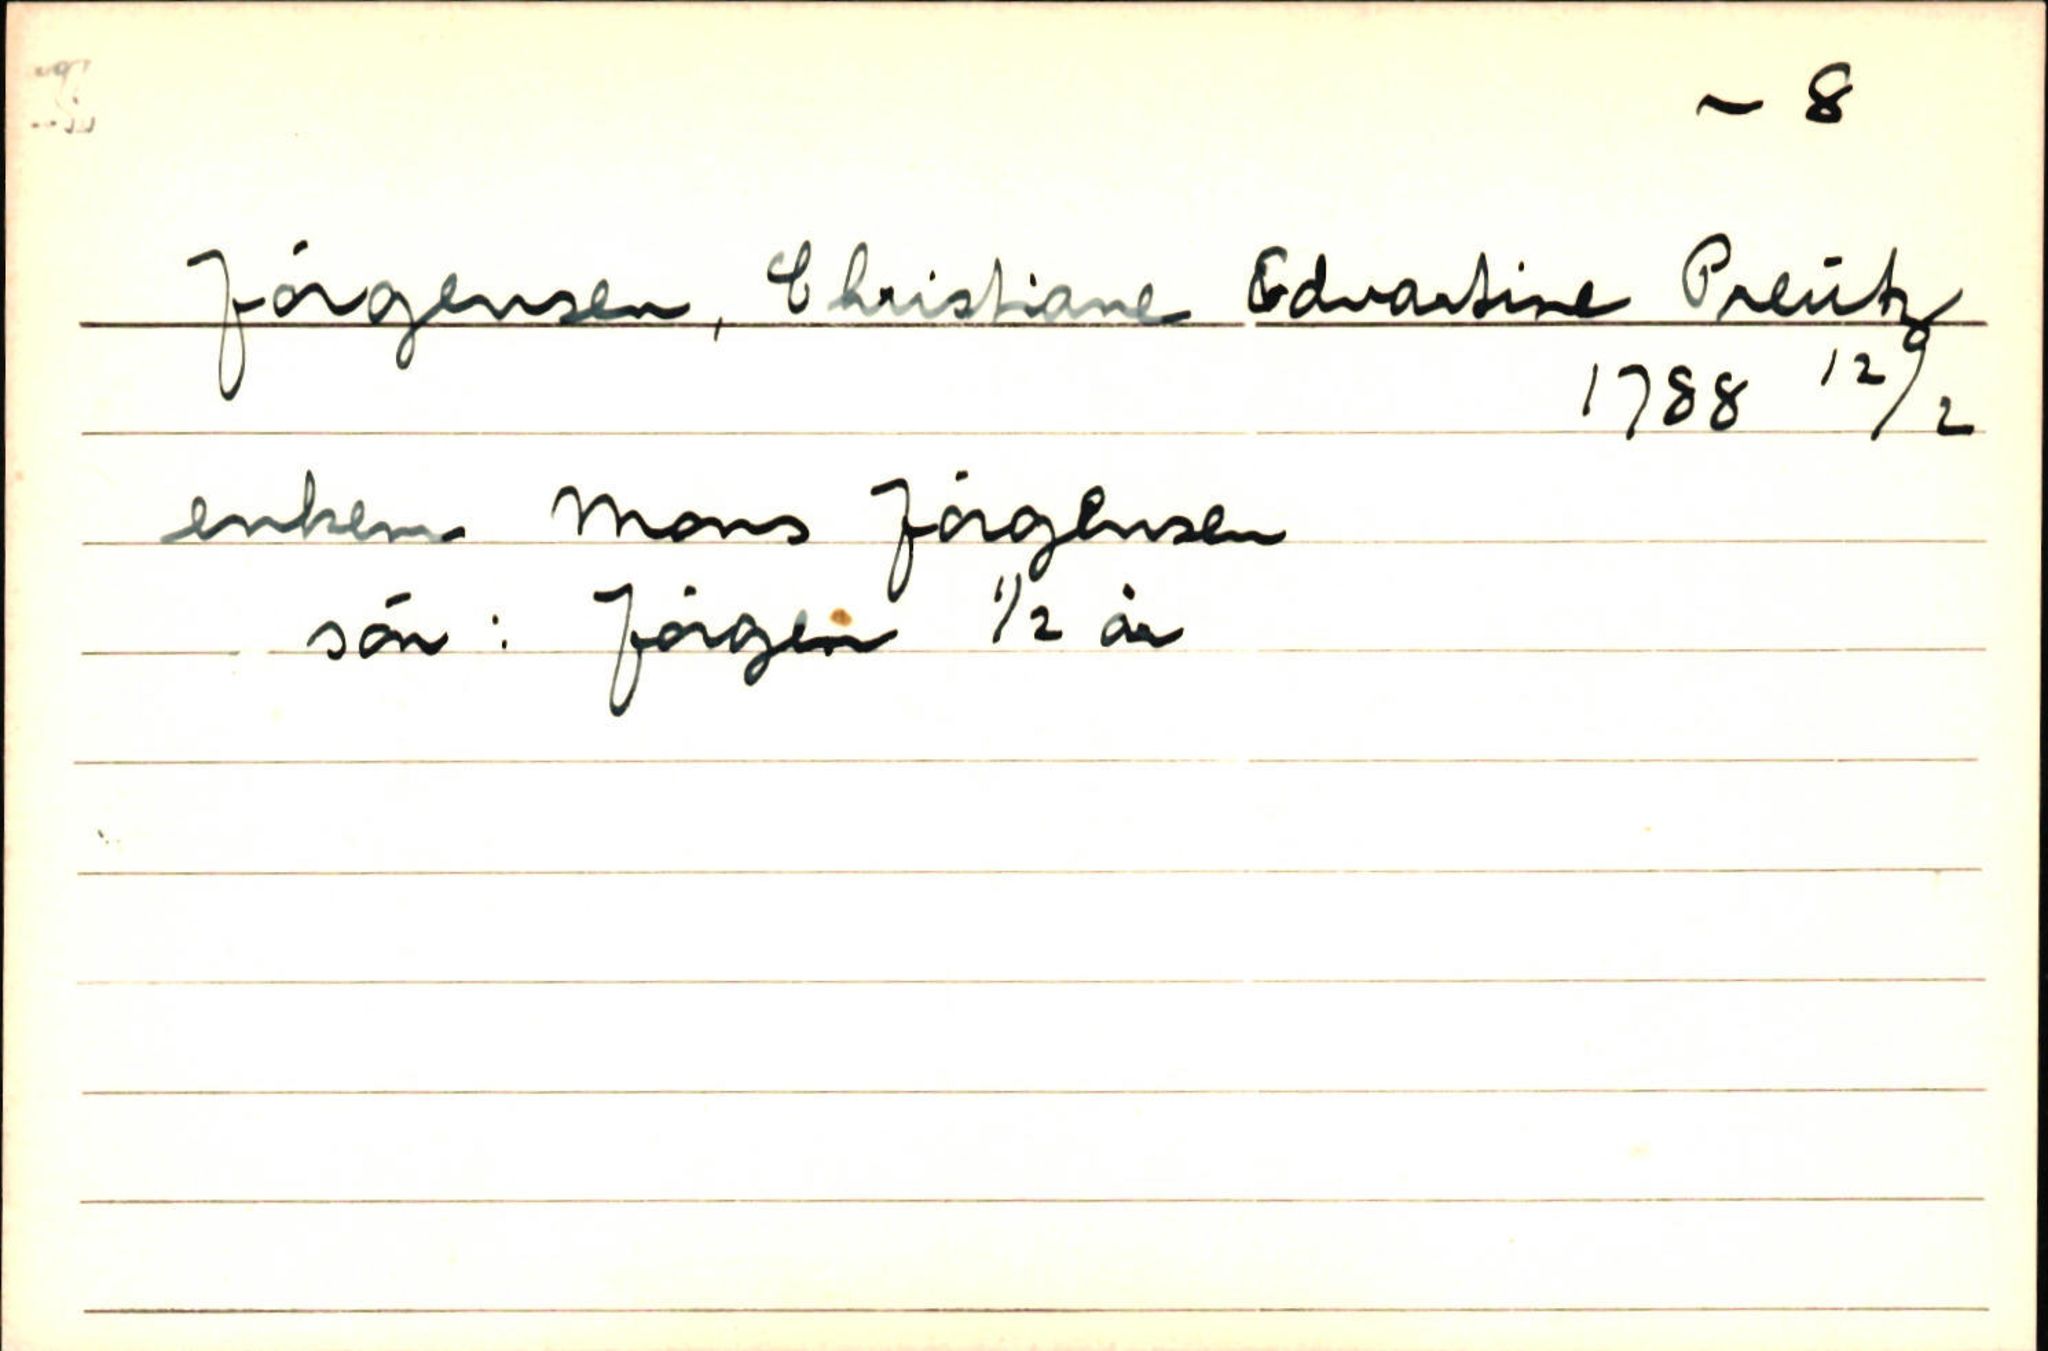 ~ 8
Jörgensen, Christiane Edvartine Preütz
1788 12/2
enkem. Mons Jörgensen
sön : Jörgen 1/2 år